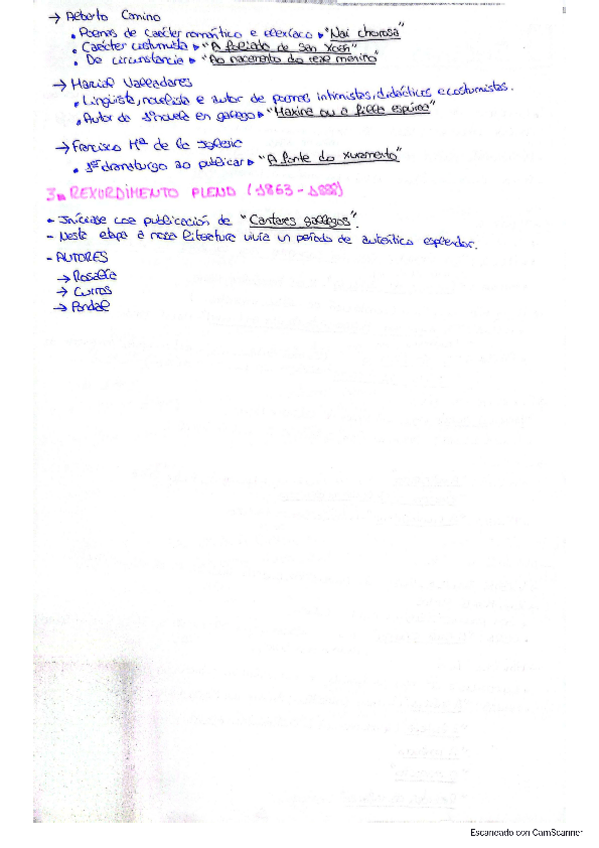 → Alberto Camino
• Poemas de carácter romántico e elexíaco ▸ "Nai chorosa"
• Carácter costumista ▸ "A foliada de San Xoán"
• De circunstancia ▸ "Ao nacemento do rexe meniño"
→ Marcial Valladares
• Lingüista, novelista e autor de poemas intimistas, didácticos e costumistas.
• Autor da 1ª novela en galego ▸ "Maxina ou a filla espúrea"
→ Francisco Mª de la Iglesia
• 1º dramaturgo ao publicar ▸ "A fonte do xuramento"
3. REXURDIMENTO PLENO (1863 - 1888)
- Iníciase coa publicación de "Cantares gallegos".
- Nesta etapa a nosa literatura vivía un período de auténtico esplendor.
- AUTORES
→ Rosalía
→ Curros
→ Pondal
Escaneado con CamScanner